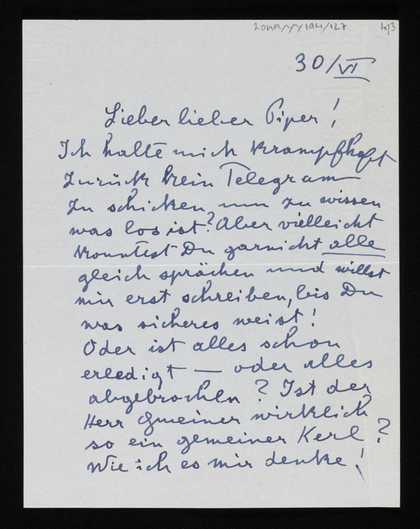 4/3
30/VI
Lieber lieber Piper!
Ich halte mich krampfhaft
zurück kein Telegram
zu schicken, um zu wissen
was los ist? Aber vielleicht
konntest Du garnicht alle
gleich sprächen und willst
mir erst schreiben, bis Du
was sicheres weist!
Oder ist alles schon
erledigt — oder alles
abgebrochen? Ist der
Herr Gmeiner wirklich
so ein gemeiner Kerl?
Wie ich es mir denke!